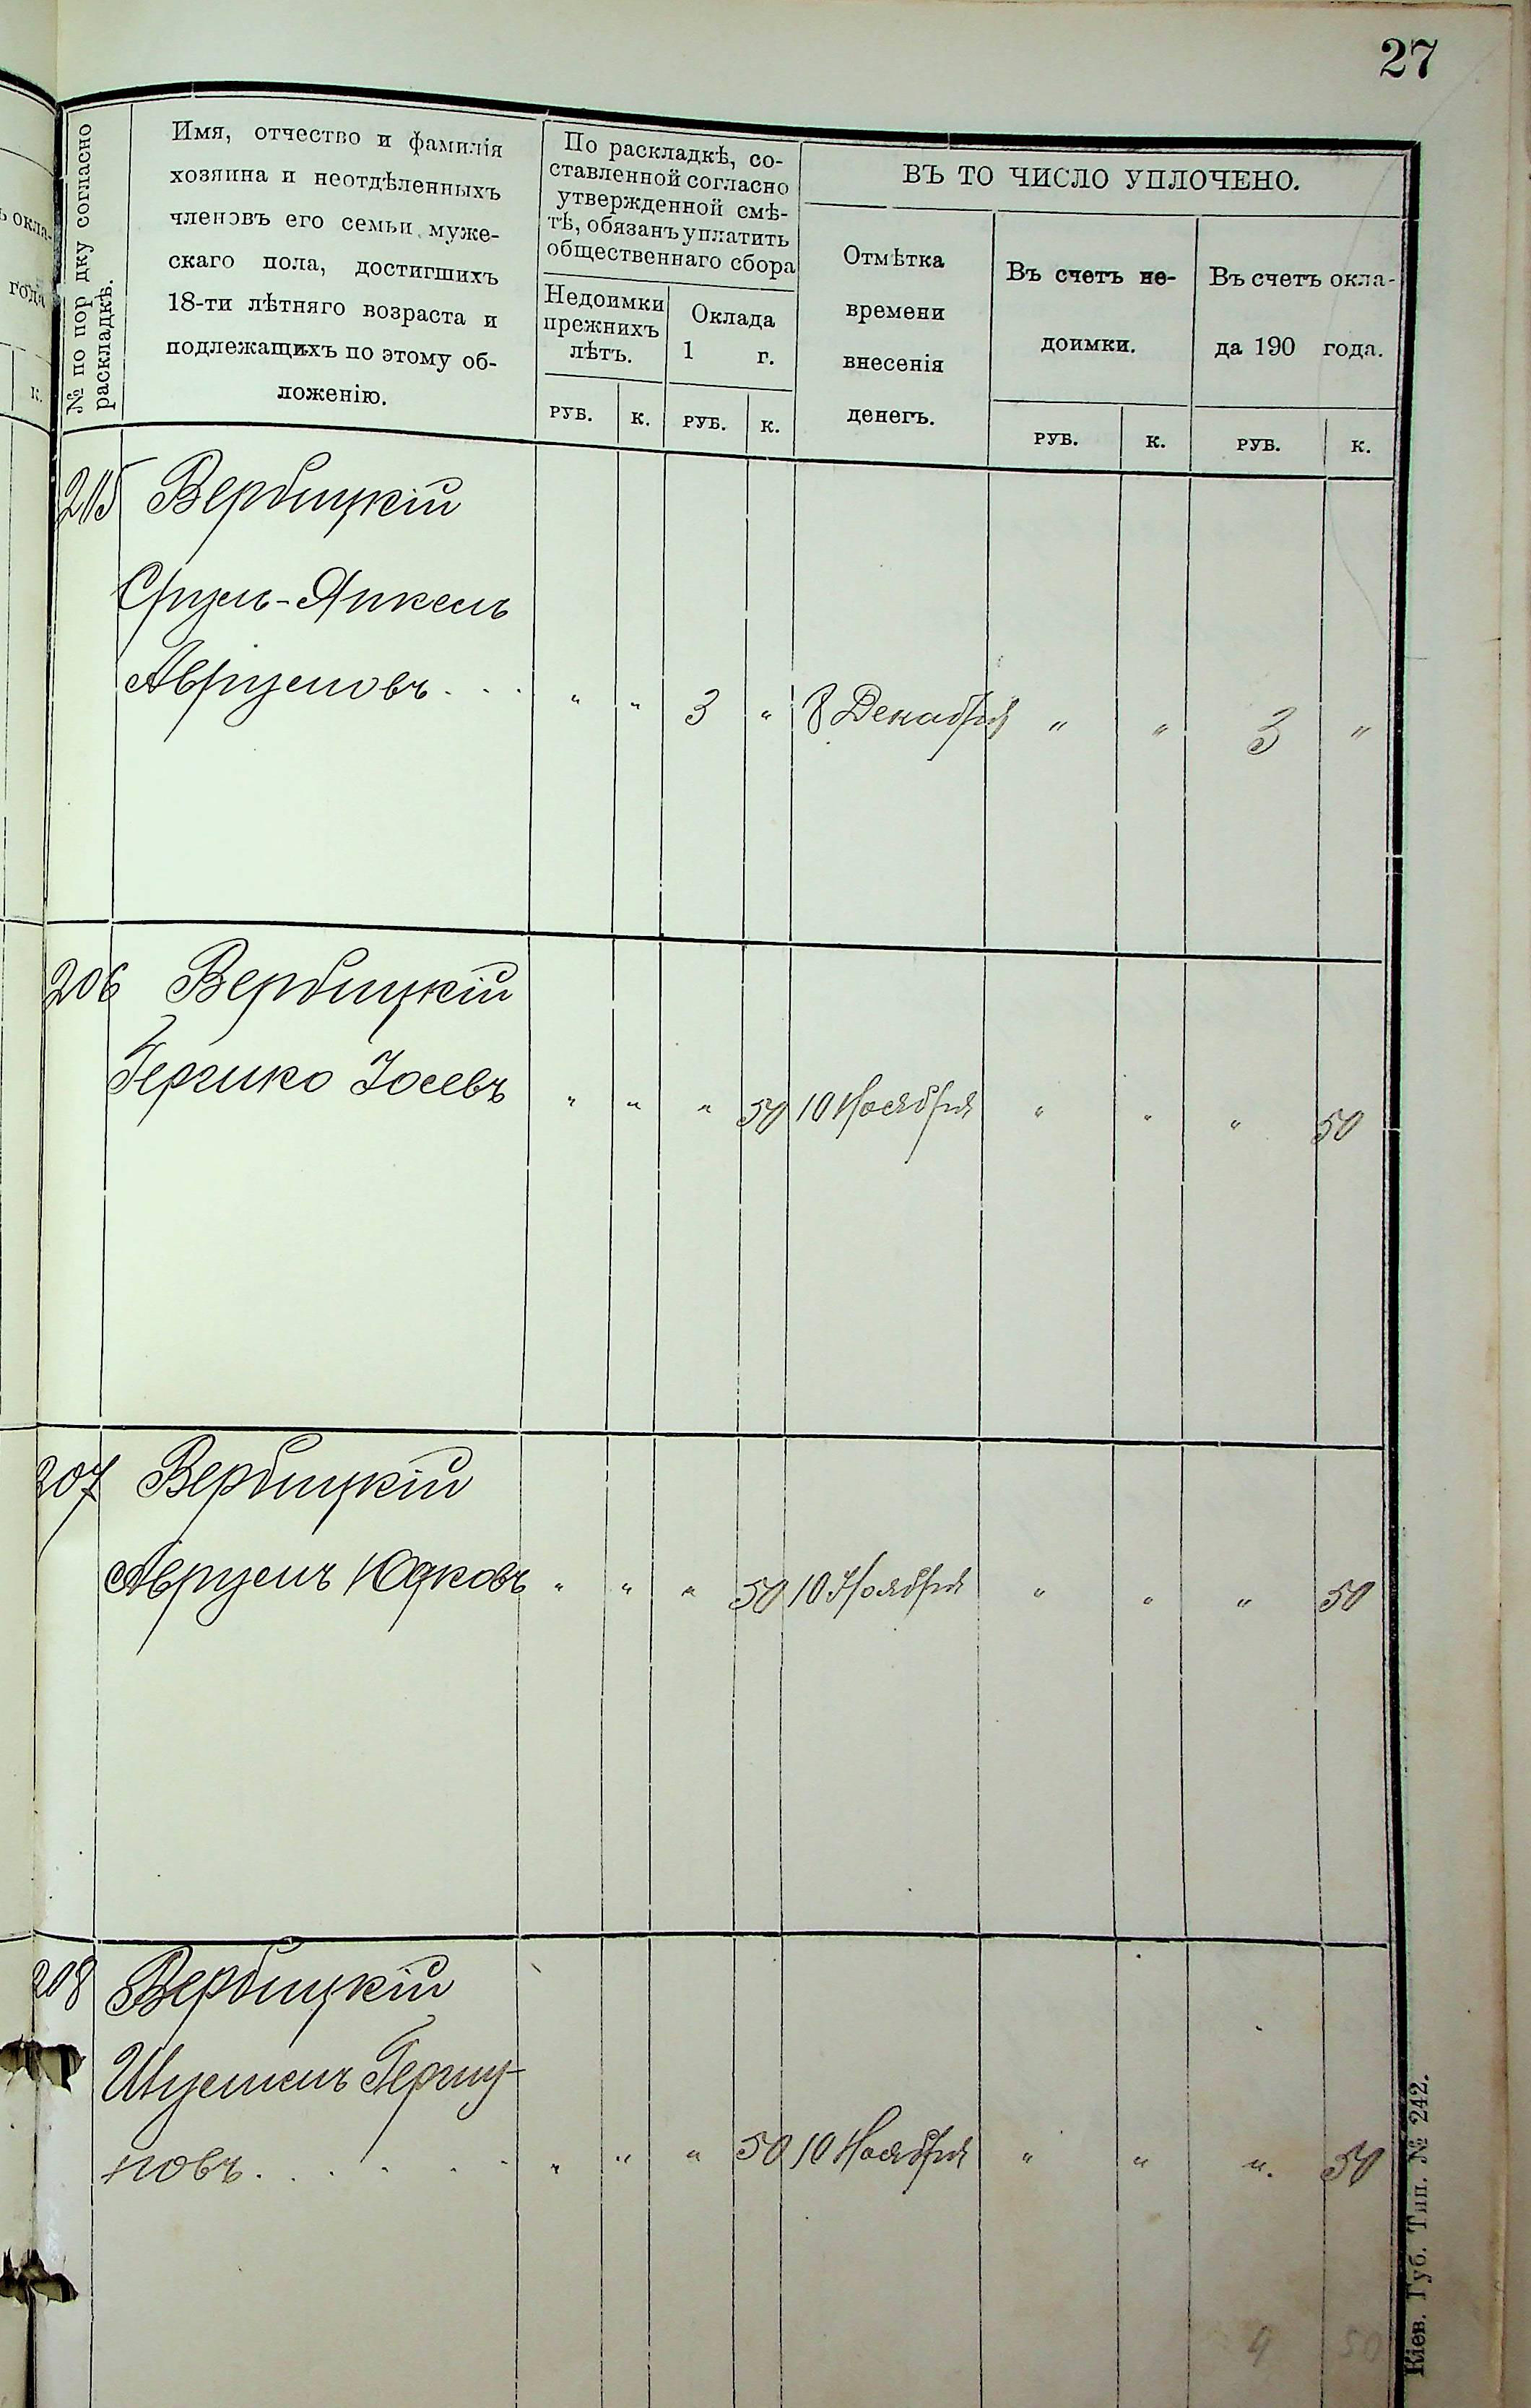 27
ь окла-
года
к.
№ по пор дку согласно
раскладкѣ.
Имя, отчество и фамилія
хозяина и неотдѣленныхъ
членовъ его семьи муже-
скаго пола, достигшихъ
18-ти лѣтняго возраста и
подлежащихъ по этому об-
ложенію.
По раскладкѣ, со-
ставленной согласно
утвержденной смѣ-
тѣ, обязанъ уплатить
общественнаго сбора
Недоимки
прежнихъ
лѣтъ.
Оклада
1 г.
РУБ. К. РУБ. К.
ВЪ ТО ЧИСЛО УПЛОЧЕНО.
Отмѣтка
времени
внесенія
денегъ.
Въ счетъ не-
доимки.
Въ счетъ окла-
да 190 года.
РУБ. К. РУБ. К.
Вербицкій
Сруль-Янкель
Аврумовъ . . . " " 3 " 8 Декабря " " 3 "
206 Вербицкій
Гершко Іосевъ " " " 50 10 Ноября " " " 50
207 Вербицкій
Аврумъ Юдковъ " " " 50 10 Ноября " " " 50
208 Вербицкій
Шулемъ Гершу-
новъ. . . . . . " " " 50 10 Ноября " " " 50
4 50
Кіев. Губ. Тип. № 242.